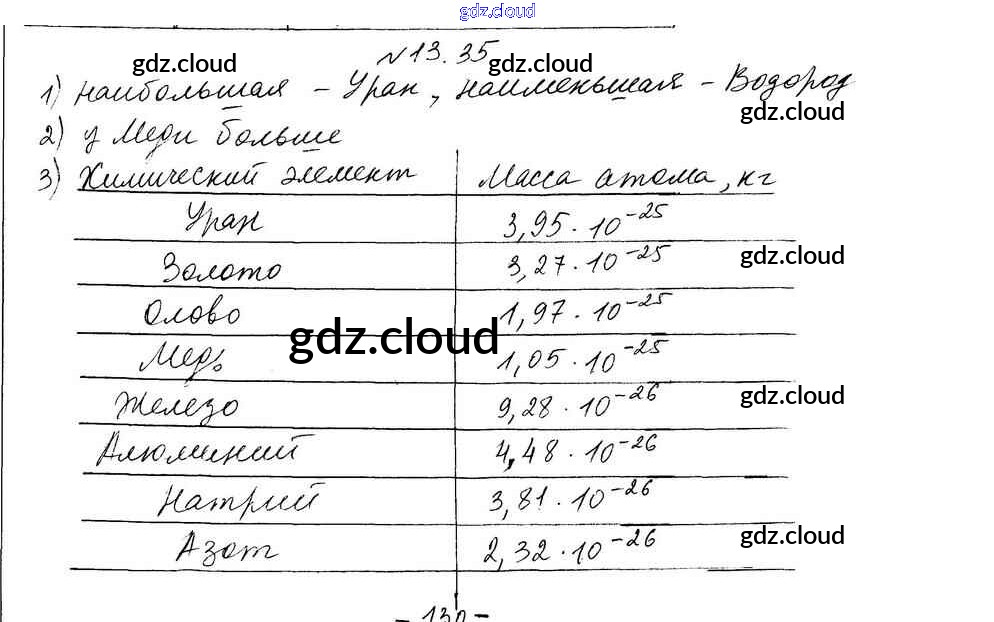 gdz.cloud
№13.35
gdz.cloud gdz.cloud
1) наибольшая – Уран, наименьшая – Водород
gdz.cloud
2) у Меди больше
3) Химический элемент Масса атома, кг
Уран 3,95 · 10⁻²⁵
Золото 3,27 · 10⁻²⁵ gdz.cloud
Олово 1,97 · 10⁻²⁵
gdz.cloud
Медь 1,05 · 10⁻²⁵
Железо 9,28 · 10⁻²⁶ gdz.cloud
Алюминий 4,48 · 10⁻²⁶
Натрий 3,81 · 10⁻²⁶
Азот 2,32 · 10⁻²⁶ gdz.cloud
– 130 –